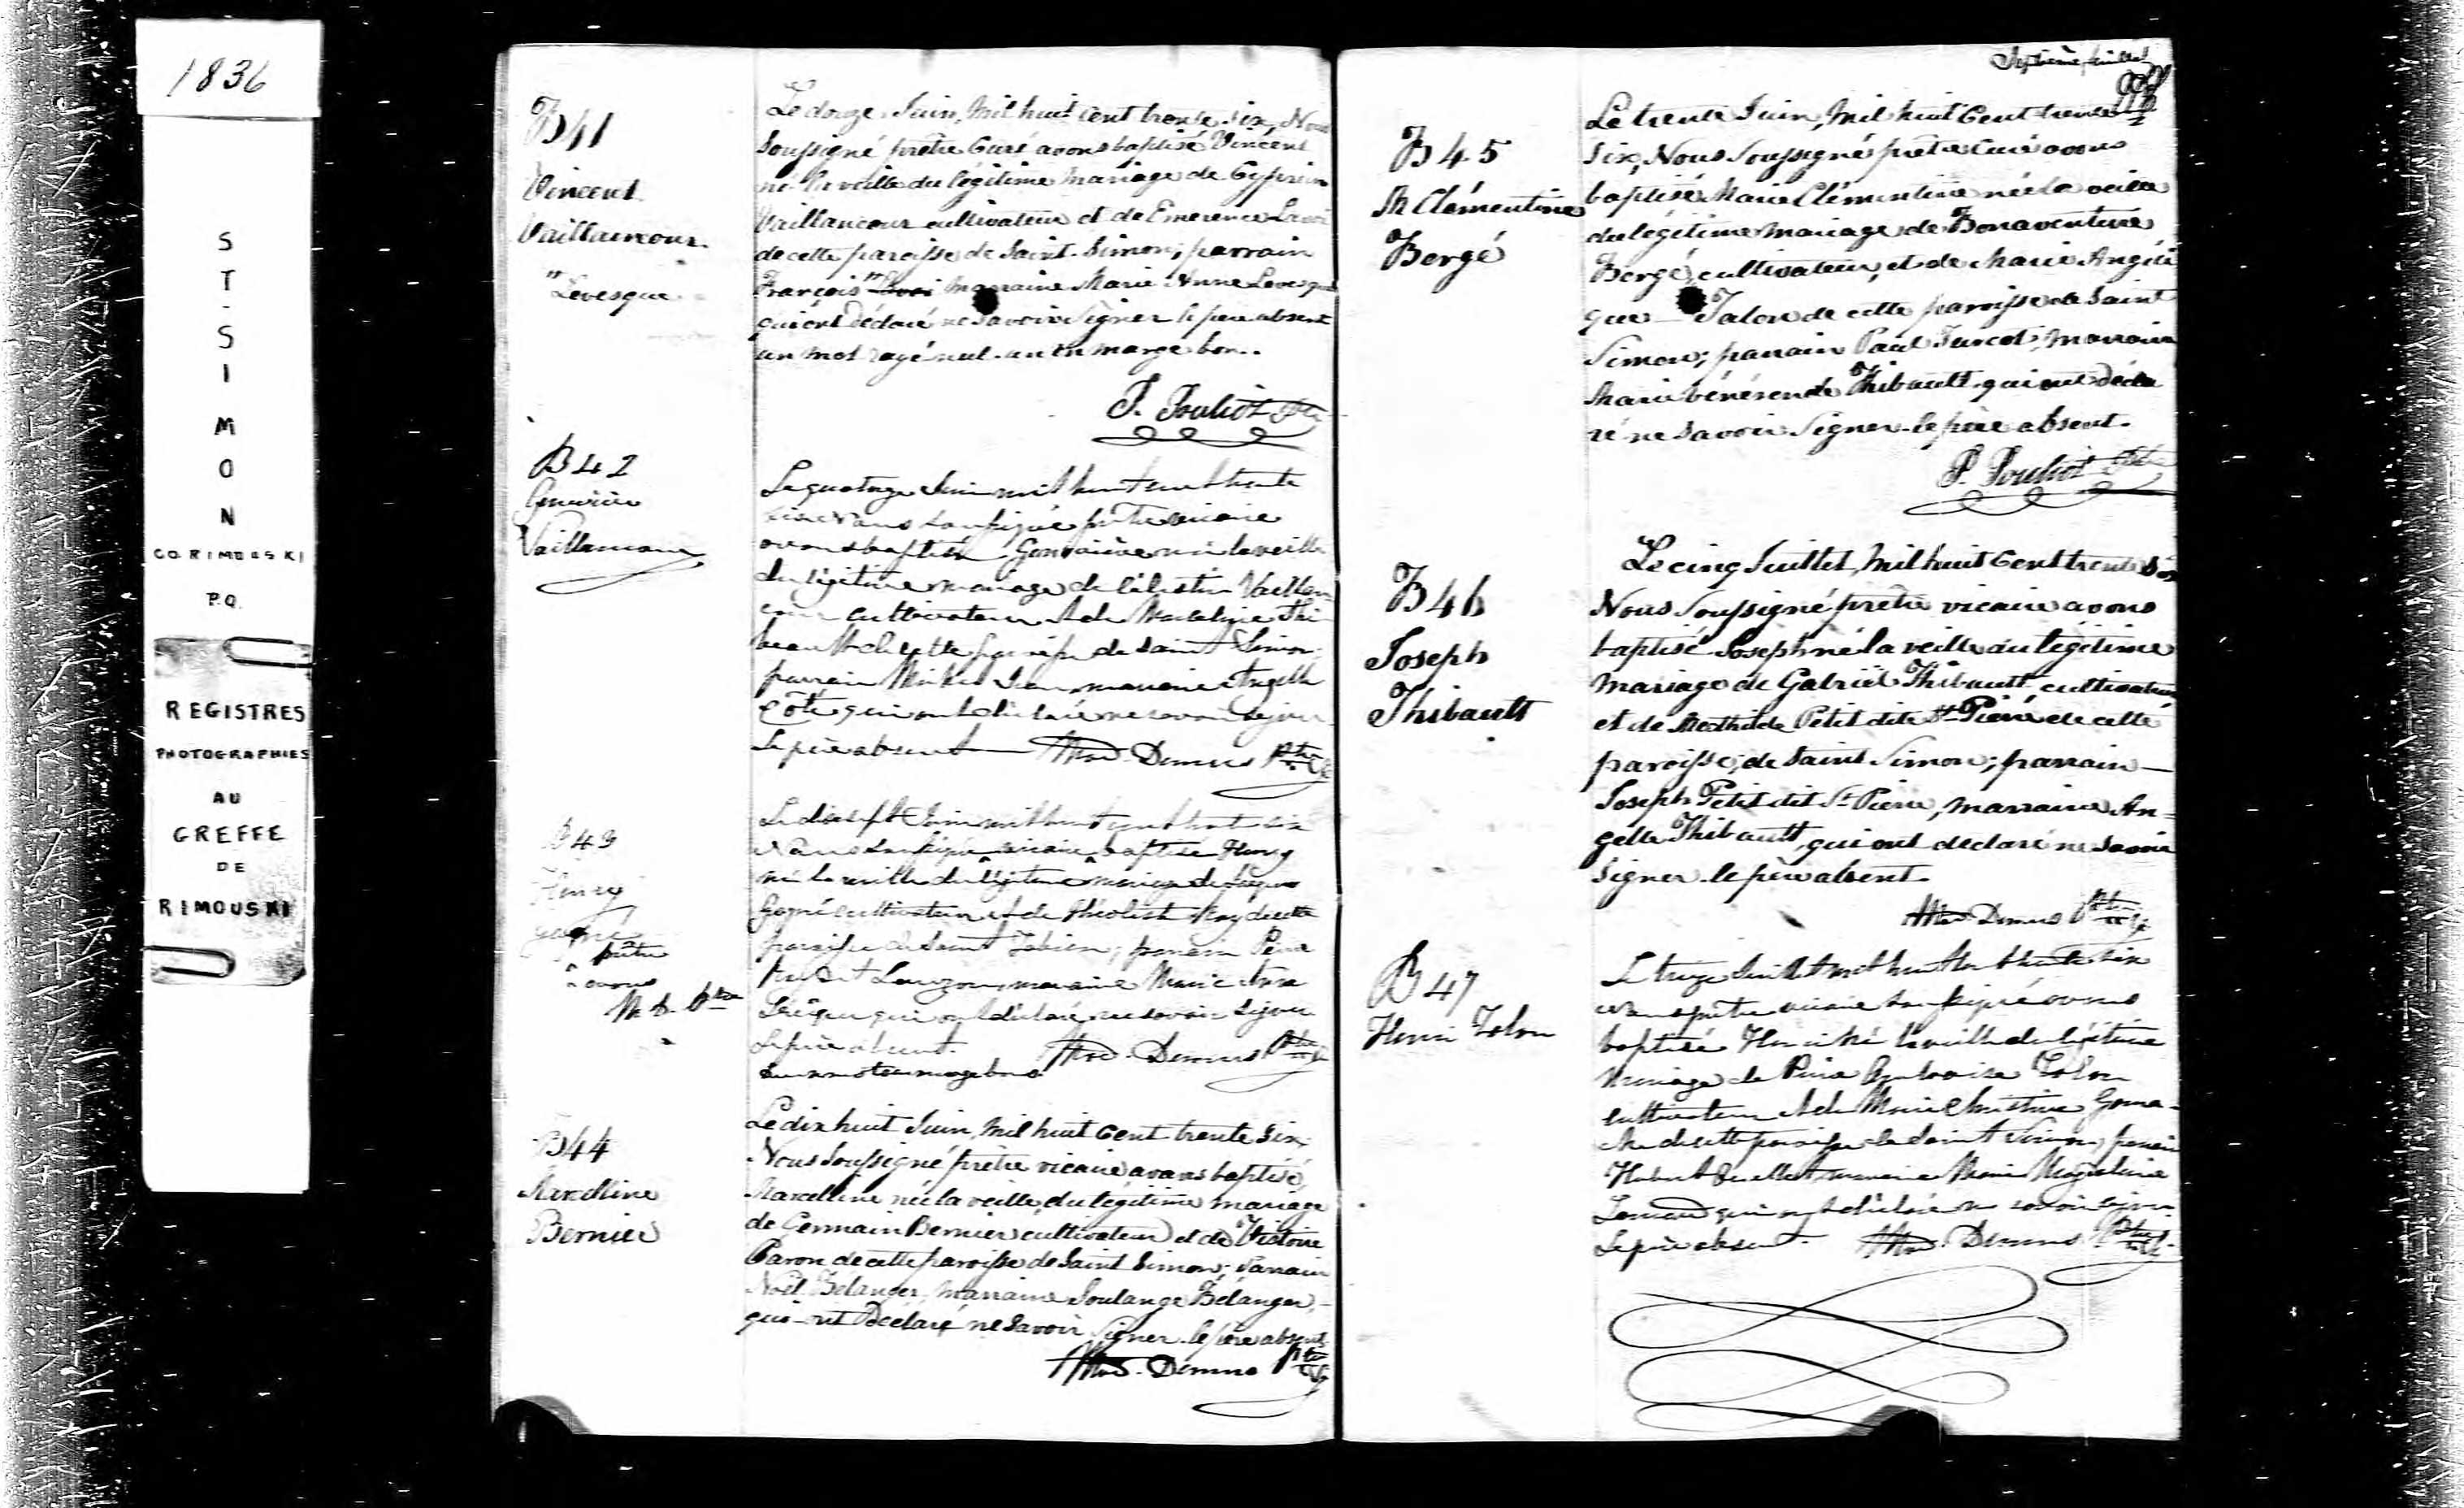 1836
ST-SIMON
CO. RIMOUSKI
P.Q.
REGISTRES
PHOTOGRAPHIES
AU
GREFFE
DE
RIMOUSKI
B41
Vincent
Vaillancour
"Levesque
Le douze Juin, Mil huit Cent trente six, Nous
Soussigné prêtre Curé avons baptisé Vincent
né la veille du légitime Mariage de Cyprien
Vaillancour cultivateur et de Emerence
de cette paroisse de Saint-Simon; parrain
François " Marraine Marie Anne Levesque
qui ont déclaré ne savoir Signer le père absent
un mot rayé nul-un en marge bon.
P. Pouliot Ptre
B42
Genviève
Vaillancour
Le quatorze Juin mil huit cent trente
six Nous soussigné prêtre vicaire
avons baptisé Genviève née la veille
du légitime mariage de Célestin Vaillan-
cour cultivateur et de Madeleine Thi-
beault de cette paroisse de Saint Simon;
parrain marraine Angelle
Côté qui ont déclaré ne savoir signer
Le père absent Ptre
B43
Henry
Gagné
prêtre
avons
Le dix sept Juin mil huit cent trente six
Nous soussigné vicaire baptisé Henry
né la veille du légitime mariage de
Gagné cultivateur et de Roy de cette
paroisse de Saint Fabien; parrain
Lauzon, marraine Marie Anne
qui ont déclaré ne savoir signer
Le père absent. Ptre
deux mots en marge bons
B44
Marcelline
Bernier
Le dix huit Juin, Mil huit Cent trente six,
Nous Soussigné prêtre vicaire avons baptisé
Marcelline née la veille du légitime mariage
de Germain Bernier cultivateur et de Victoire
Caron de cette paroisse de Saint Simon; Parrain
Noël Bélanger, Marraine Soulange Bélanger,
qui ont Déclaré ne Savoir Signer le père absent.
Ptre
Septième feuillet
B45
M Clémentine
Bergé
Le trente Juin, Mil huit Cent trente
Six, Nous Soussigné prêtre Curé avons
baptisé Marie Clémentine née la veille
du légitime mariage de Bonaventure
Bergé, cultivateur, et de Marie Angéli
que Jalon de cette paroisse de Saint
Simon; parrain Paul Turcot; Marraine
Marie Thibault qui ont décla
ré ne Savoir Signer le père absent.
P. Pouliot Ptre
B46
Joseph
Thibault
Le cinq Juillet, Mil huit Cent trente Six
Nous Soussigné prêtre vicaire avons
baptisé Joseph né la veille du légitime
mariage de Gabriël Thibault, cultivateur
et de Mathilde Petit dite St Pierre de cette
paroisse, de Saint Simon; parrain
Joseph Petit dit St Pierre, Marraine An-
gelle Thibault, qui ont déclaré ne Savoir
Signer le père absent.
Ptre
B47
Henri Jalon
Le treize Juillet mil huit cent trente six
Nous prêtre vicaire soussigné avons
baptisé Henri né la veille du légitime
mariage de Jalon
cultivateur et de Marie Christine Gama-
che de cette paroisse de Saint Simon; parrain
Hubert Ouellet, marraine Marie
qui ont déclaré ne savoir signer
Le père absent. Ptre